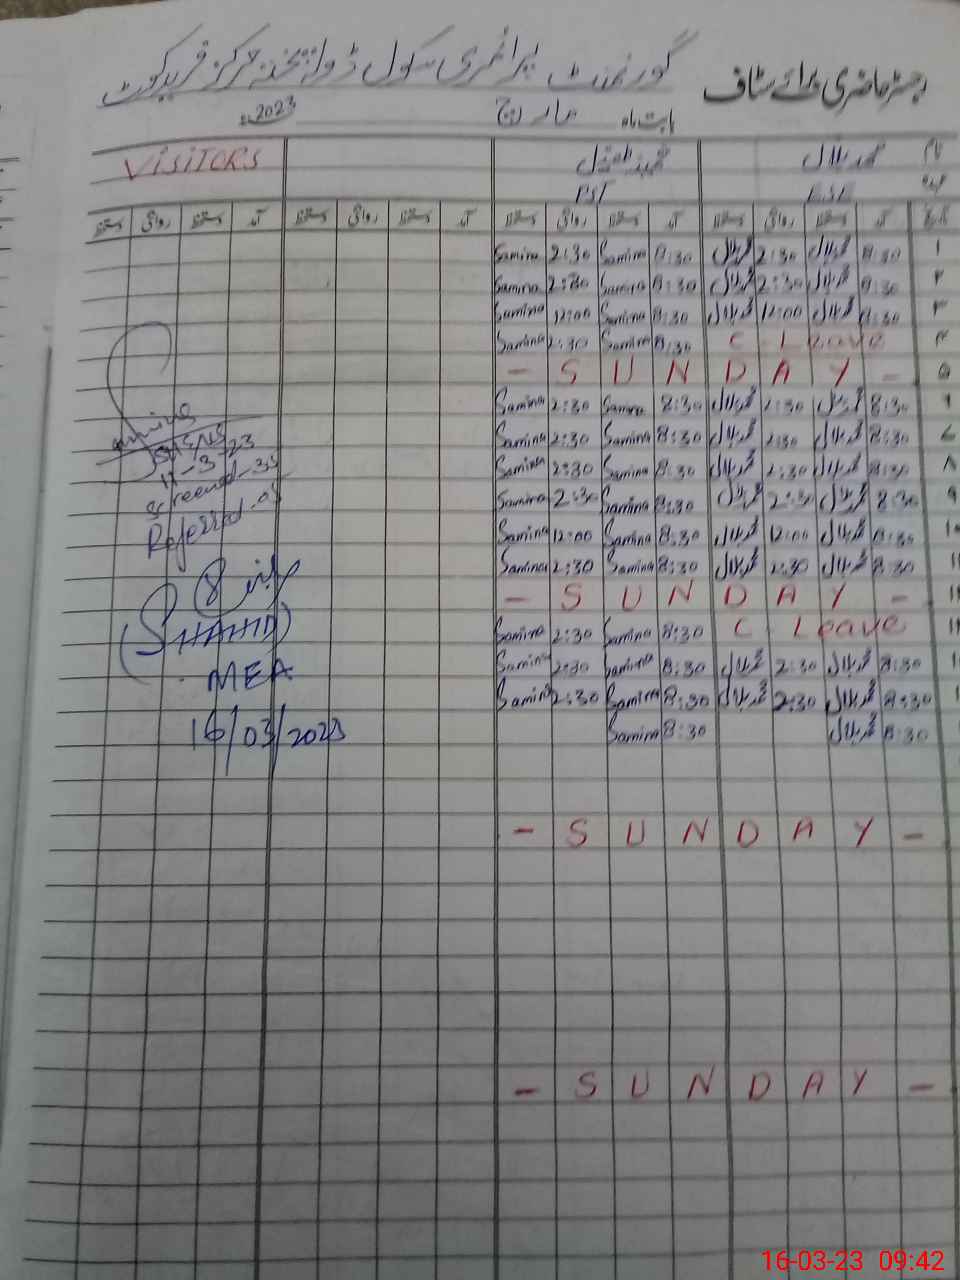 رجسٹر حاضری برائے سٹاف گورنمنٹ پرائمری سکول مرکز فرید کوٹ
بابت ماہ مارچ 2023ء
نام محمد بلال VISITORS
عہدہ EST PST
تاریخ آمد دستخط روانگی دستخط آمد دستخط روانگی دستخط آمد دستخط روانگی دستخط آمد دستخط روانگی دستخط
۱ 8:30 محمد بلال 2:30 محمد بلال 8:30 Samina 2:30 Samina
۲ 8:30 محمد بلال 2:30 محمد بلال 8:30 Samina 2:30 Samina
۳ 8:30 محمد بلال 12:00 محمد بلال 8:30 Samina 12:00 Samina
۴ C Leave 8:30 Samina 2:30 Samina
۵ - SUNDAY -
۶ 8:30 محمد بلال 2:30 محمد بلال 8:30 Samina 2:30 Samina
۷ 8:30 محمد بلال 2:30 محمد بلال 8:30 Samina 2:30 Samina
۸ 8:30 محمد بلال 2:30 محمد بلال 8:30 Samina 2:30 Samina
۹ 8:30 محمد بلال 2:30 محمد بلال 8:30 Samina 2:30 Samina
8:30 محمد بلال 12:00 محمد بلال 8:30 Samina 12:00 Samina
8:30 محمد بلال 2:30 محمد بلال 8:30 Samina 2:30 Samina
- SUNDAY -
C Leave 8:30 Samina 2:30 Samina
8:30 محمد بلال 2:30 محمد بلال 8:30 Samina 2:30 Samina
8:30 محمد بلال 2:30 محمد بلال 8:30 Samina 2:30 Samina
8:30 محمد بلال 8:30 Samina
- SUNDAY -
- SUNDAY -
11-3-23
Screened-35
Referred-05
(SHAHID)
MEA
16/03/2023
16-03-23 09:42